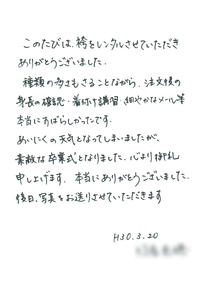 このたびは、袴をレンタルさせていただき
ありがとうございました。
種類の多さもさることながら、注文後の
身長の確認・着付け講習・細やかなメール等
本当にすばらしかったです。
あいにくの天気となってしまいましたが、
素敵な卒業式となりました。心より御礼
申し上げます。本当にありがとうございました。
後日、写真をお送りさせていただきます
H30.3.20